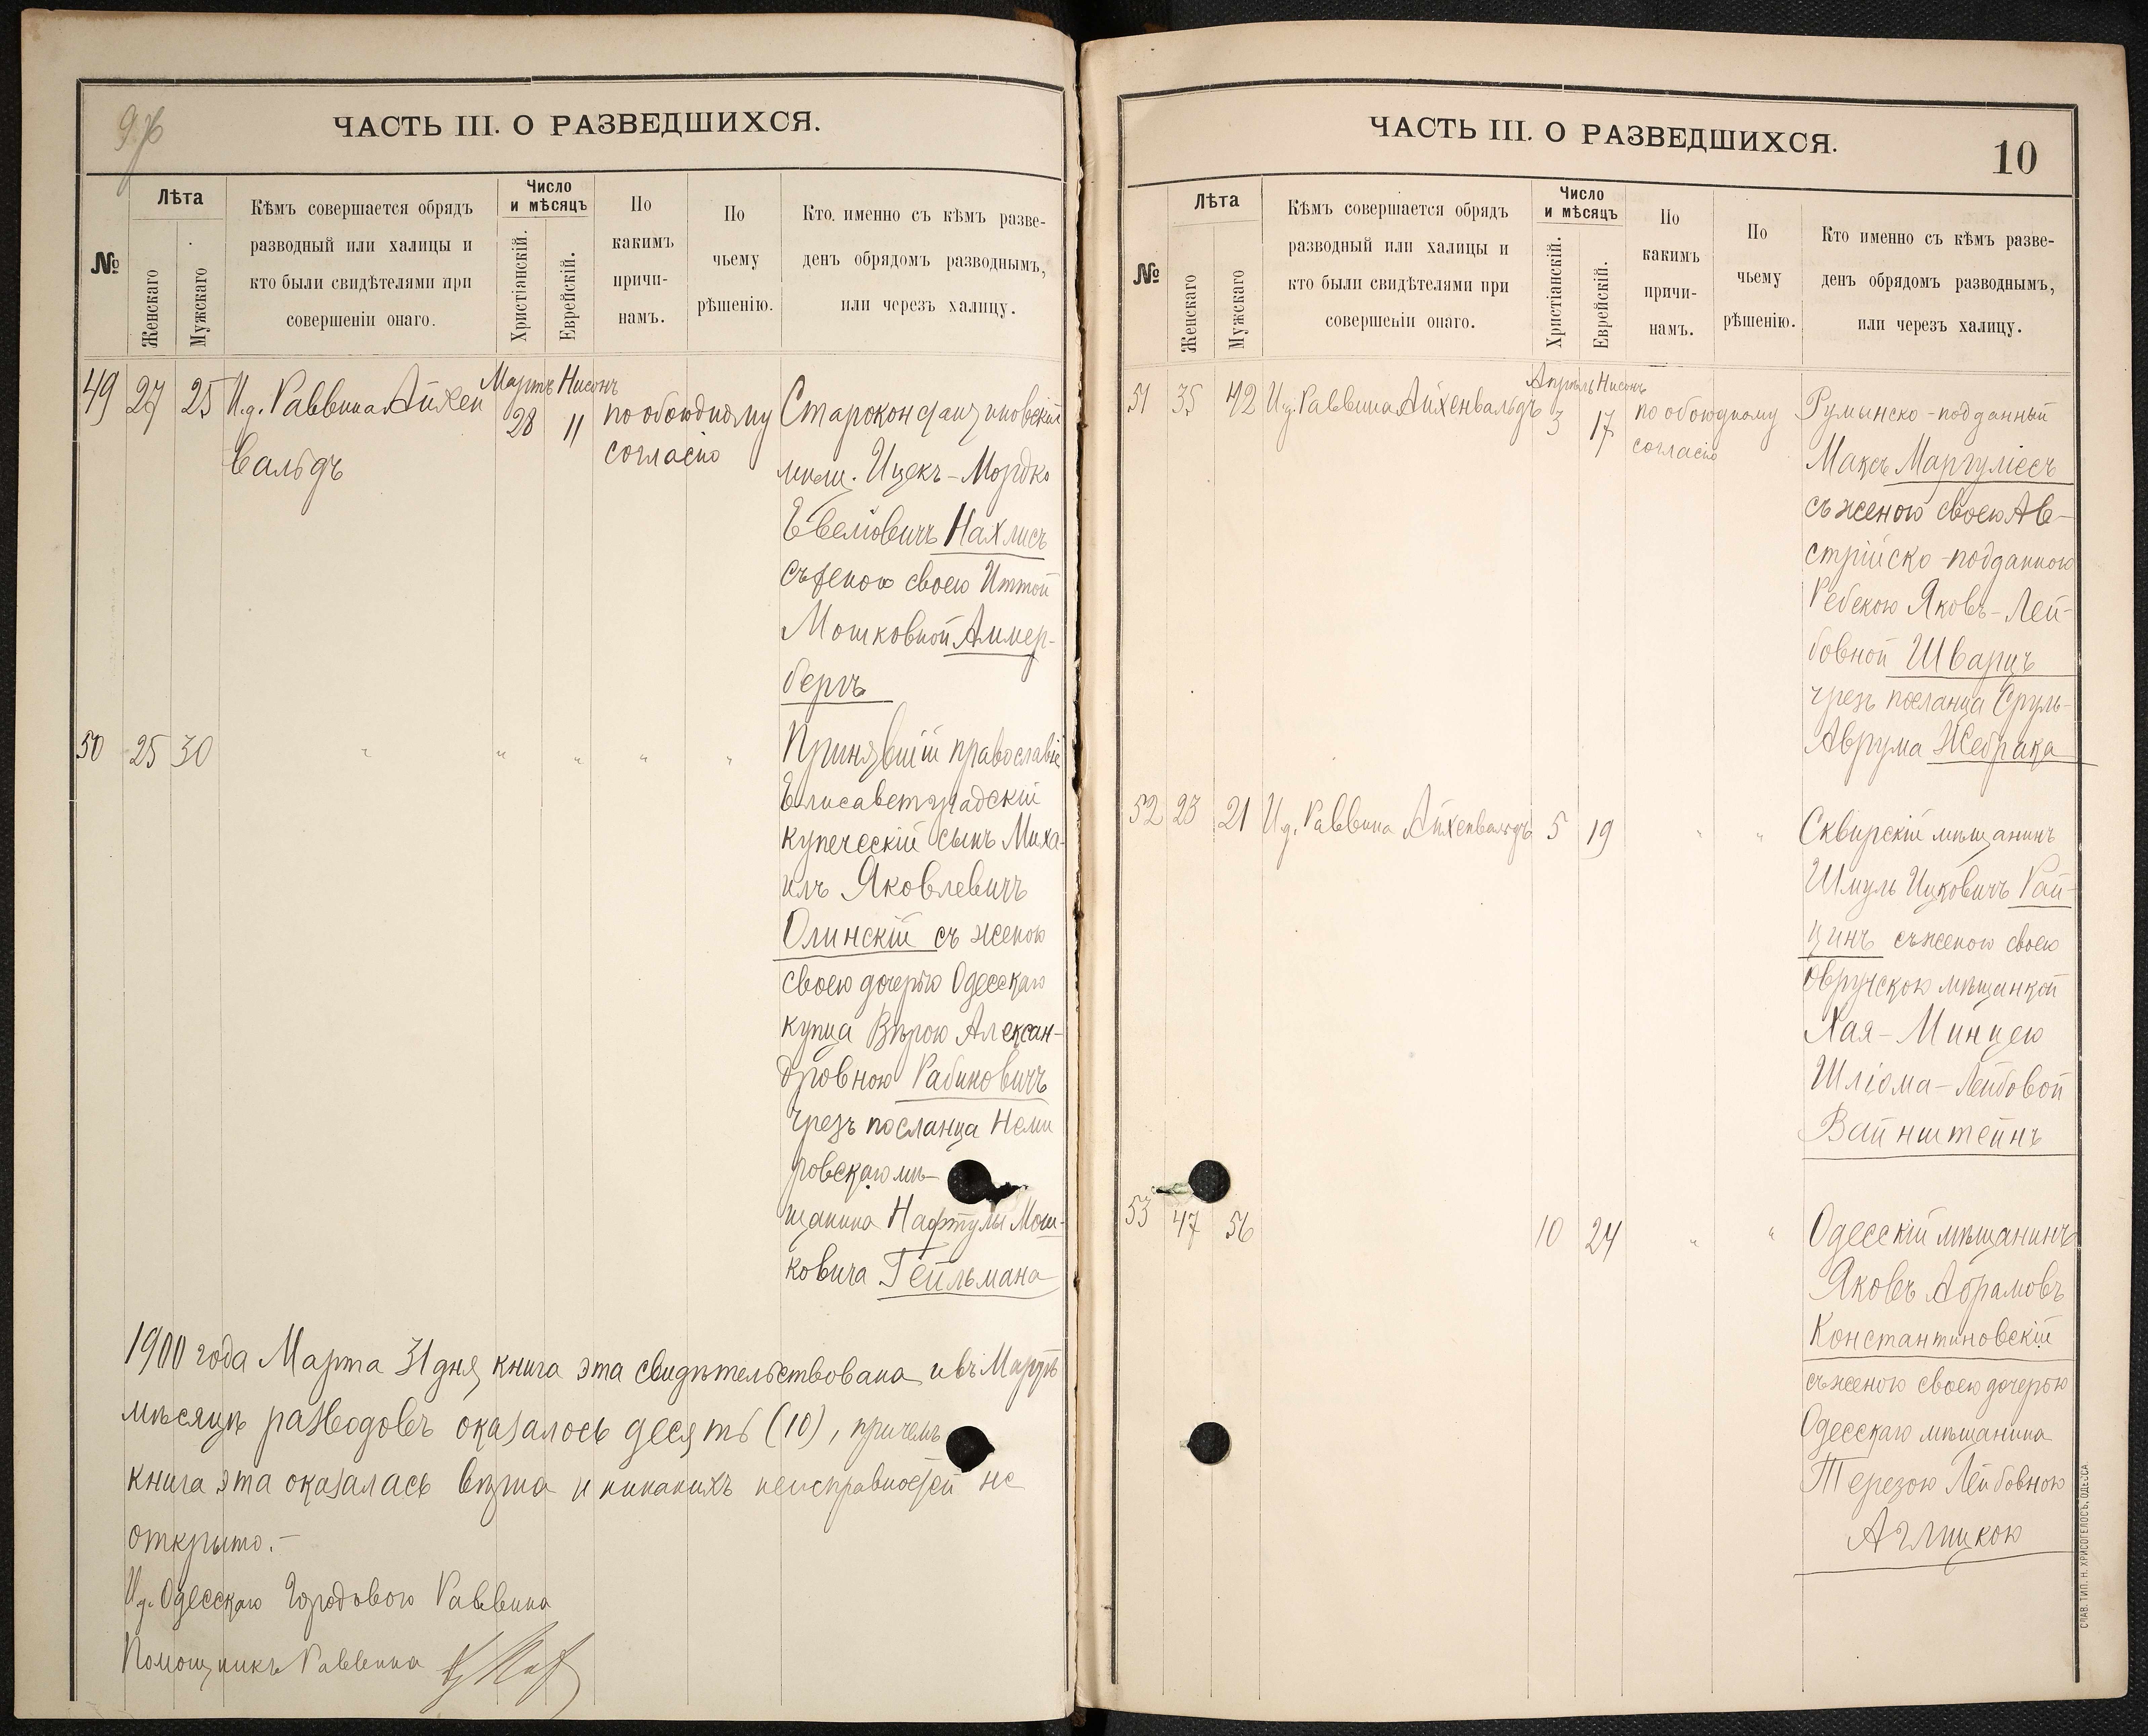 ЧАСТЬ III. О РАЗВЕДШИХСЯ.
№
Лѣта
Женскаго
Мужскаго
Кѣмъ совершается обрядъ
разводный или халицы и
кто были свидѣтелями при
совершеніи онаго.
Число
и мѣсяцъ
Христіанскій.
Еврейскій.
По
какимъ
причи-
намъ.
По
чьему
рѣшенію.
Кто именно съ кѣмъ разве-
денъ обрядомъ разводнымъ,
или черезъ халицу.
49 27 25 И.д. Раввина Айхен
вальдъ
Мартъ Нисонъ
28 11
по обоюдному
согласію
Староконстантиновскій
мѣщ. Ицекъ-Мордко
Евеліовичъ Нахлисъ
съ женою своею Иттой
Мошковной Аммер-
бергъ
50 25 30 " " " " "
Принявшій православіе
Елисаветградскій
купеческій сынъ Миха-
илъ Яковлевичъ
Олинскій съ женою
своею дочерью Одесскаго
купца Вѣрою Алексан-
дровною Рабиновичъ
чрезъ посланца Неми
ровскаго мѣ-
щанина Нафтулы Мош-
ковича Гейльмана
1900 года Марта 31 дня книга эта свидѣтельствована и въ Мартѣ
мѣсяцѣ разводовъ оказалось десять (10), причемъ
книга эта оказалась вѣрна и никакихъ неисправностей не
открыто.-
И.д. Одесскаго Городового Раввина
Помощникъ Раввина
ЧАСТЬ III. О РАЗВЕДШИХСЯ.
10
№
Лѣта
Женскаго
Мужскаго
Кѣмъ совершается обрядъ
разводный или халицы и
кто были свидѣтелями при
совершеніи онаго.
Число
и мѣсяцъ
Христіанскій.
Еврейскій.
По
какимъ
причи-
намъ.
По
чьему
рѣшенію.
Кто именно съ кѣмъ разве-
денъ обрядомъ разводнымъ,
или черезъ халицу.
51 35 42 И.д. Раввина Айхенвальдъ
Апрѣль Нисонъ
3 17
по обоюдному
согласію
Румынско-подданный
Максъ Маргуліесъ
съ женою своею Ав-
стрійско-подданною
Ребекою Яковъ-Лей-
бовной Шварцъ
чрезъ посланца Сруль-
Аврума Жебрака
52 23 21 И.д. Раввина Айхенвальдъ 5 19 " "
Сквирскій мѣщанинъ
Шмуль Ицковичъ Рай-
цинъ съ женою своею
Овручскою мѣщанкой
Хая-Минцею
Шліома-Лейбовой
Вайнштейнъ
53 47 56 10 24 " "
Одесскій мѣщанинъ
Яковъ Абрамовъ
Константиновскій
съ женою своею дочерью
Одесскаго мѣщанина
Терезою Лейбовною
Аглицкою
СЛАВ. ТИП. Н. ХРИСОГЕЛОСЪ, ОДЕССА.